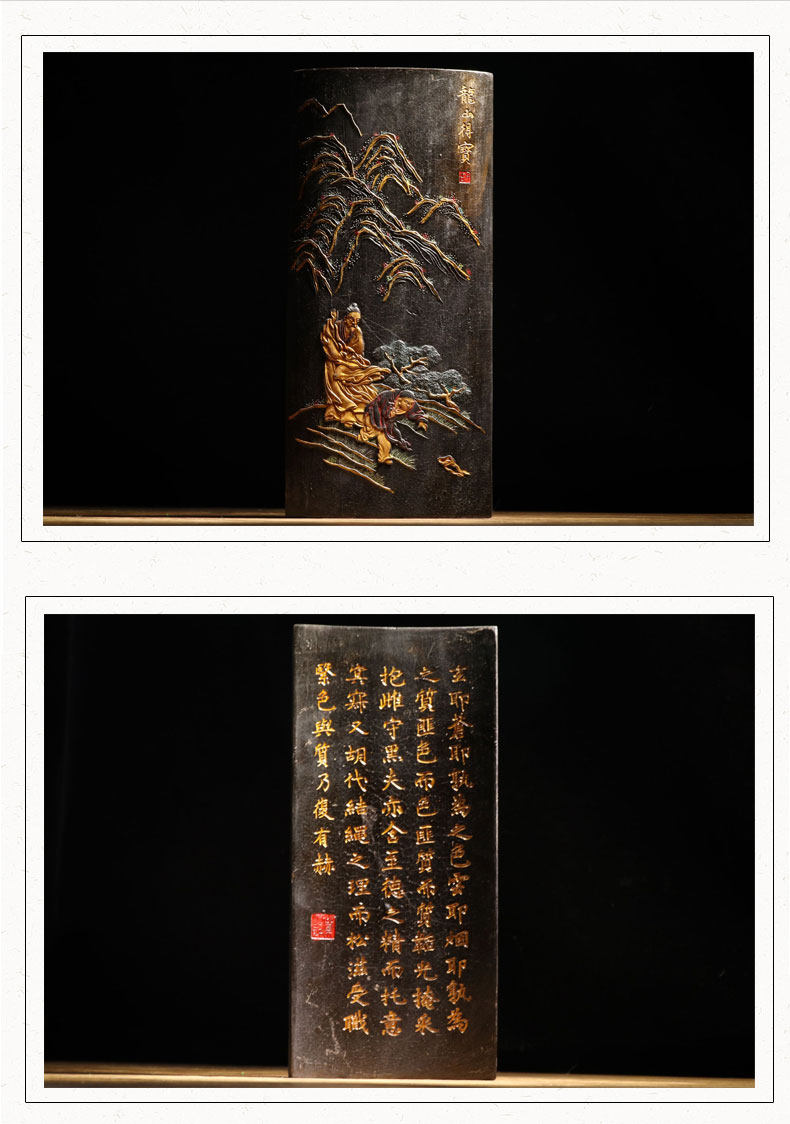 龍山得寳
玄耶蒼耶孰為之色雲耶烟耶孰為
之質匪色而色匪質而質韜光掩采
抱雌守黑夫亦含至德之精而托意
冥寂又胡代結繩之理而松滋受職
繄色與質乃復有赫